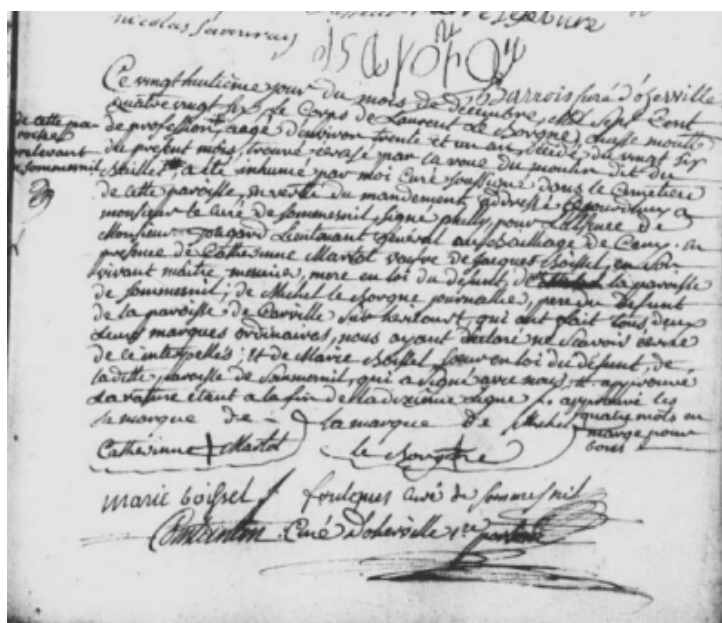 nicolas saveuray
Barrois curé d'oherville
Ce vingt huitième jour du mois de décembre, mil sept cent
quatre vingt six le Corps de Laurent Le Borgne, chasse moutte
de profession, aagé d'environ trente et un an, décédé du vingt six
du present mois, trouvé ecrasé par la roue du moulin dit du
a été inhumé par moi curé soussigné dans le Cimetiere
de cette paroisse, en vertu du mandement addressé ce jourdhui a
monsieur le curé de sommesnil signé pour l'absence de
Monsieur Lieutenant général au Bailliage de Caux. en
presence de Catherinne Martot veuve de Jacques Boissel, en son
vivant maître meunier, mere en loi du defunt, de la paroisse
de sommesnil; de Michel le Borgne journallier, pere du defunt
de la paroisse de Carville sur hericourt, qui ont fait tous deux
leurs marques ordinaires, nous ayant déclaré ne sçavoir ecrire
de ce interpellés; et de Marie Boissel, sœur en loi du défunt, de
laditte paroisse de Sommesnil, qui a signé avec nous, et approuvé
La rature étant a la fin de la dixième Ligne /. approuvé les
quatre mots en
marge pour
bons
de cette pa-
roisse
relevant
sommesnil
la marque de
Catherinne + Martot
la marque de Michel
le Borgne
marie boissel
foulques curé de sommesnil
Curé d'oherville